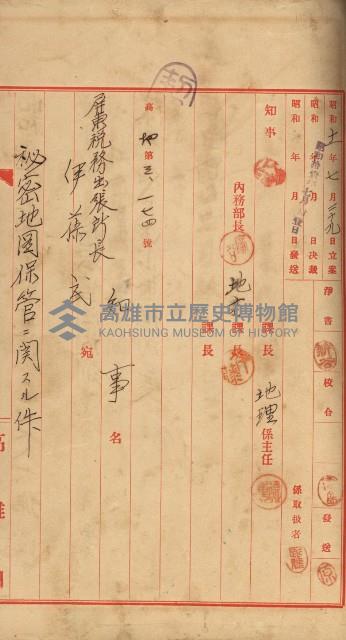 昭和十一年七月二十九日立案
淨書
校合
發送
昭和 年 月 日決裁
昭和 年 月 日發送
係取扱者
知事
內務部長
地方課長
課長
地理係主任
高地第三、一七四號
知事名
屏東稅務出張所長
伊藤 宛
祕密地圖保管ニ関スル件
高雄市立歷史博物館
KAOHSIUNG MUSEUM OF HISTORY
高雄州